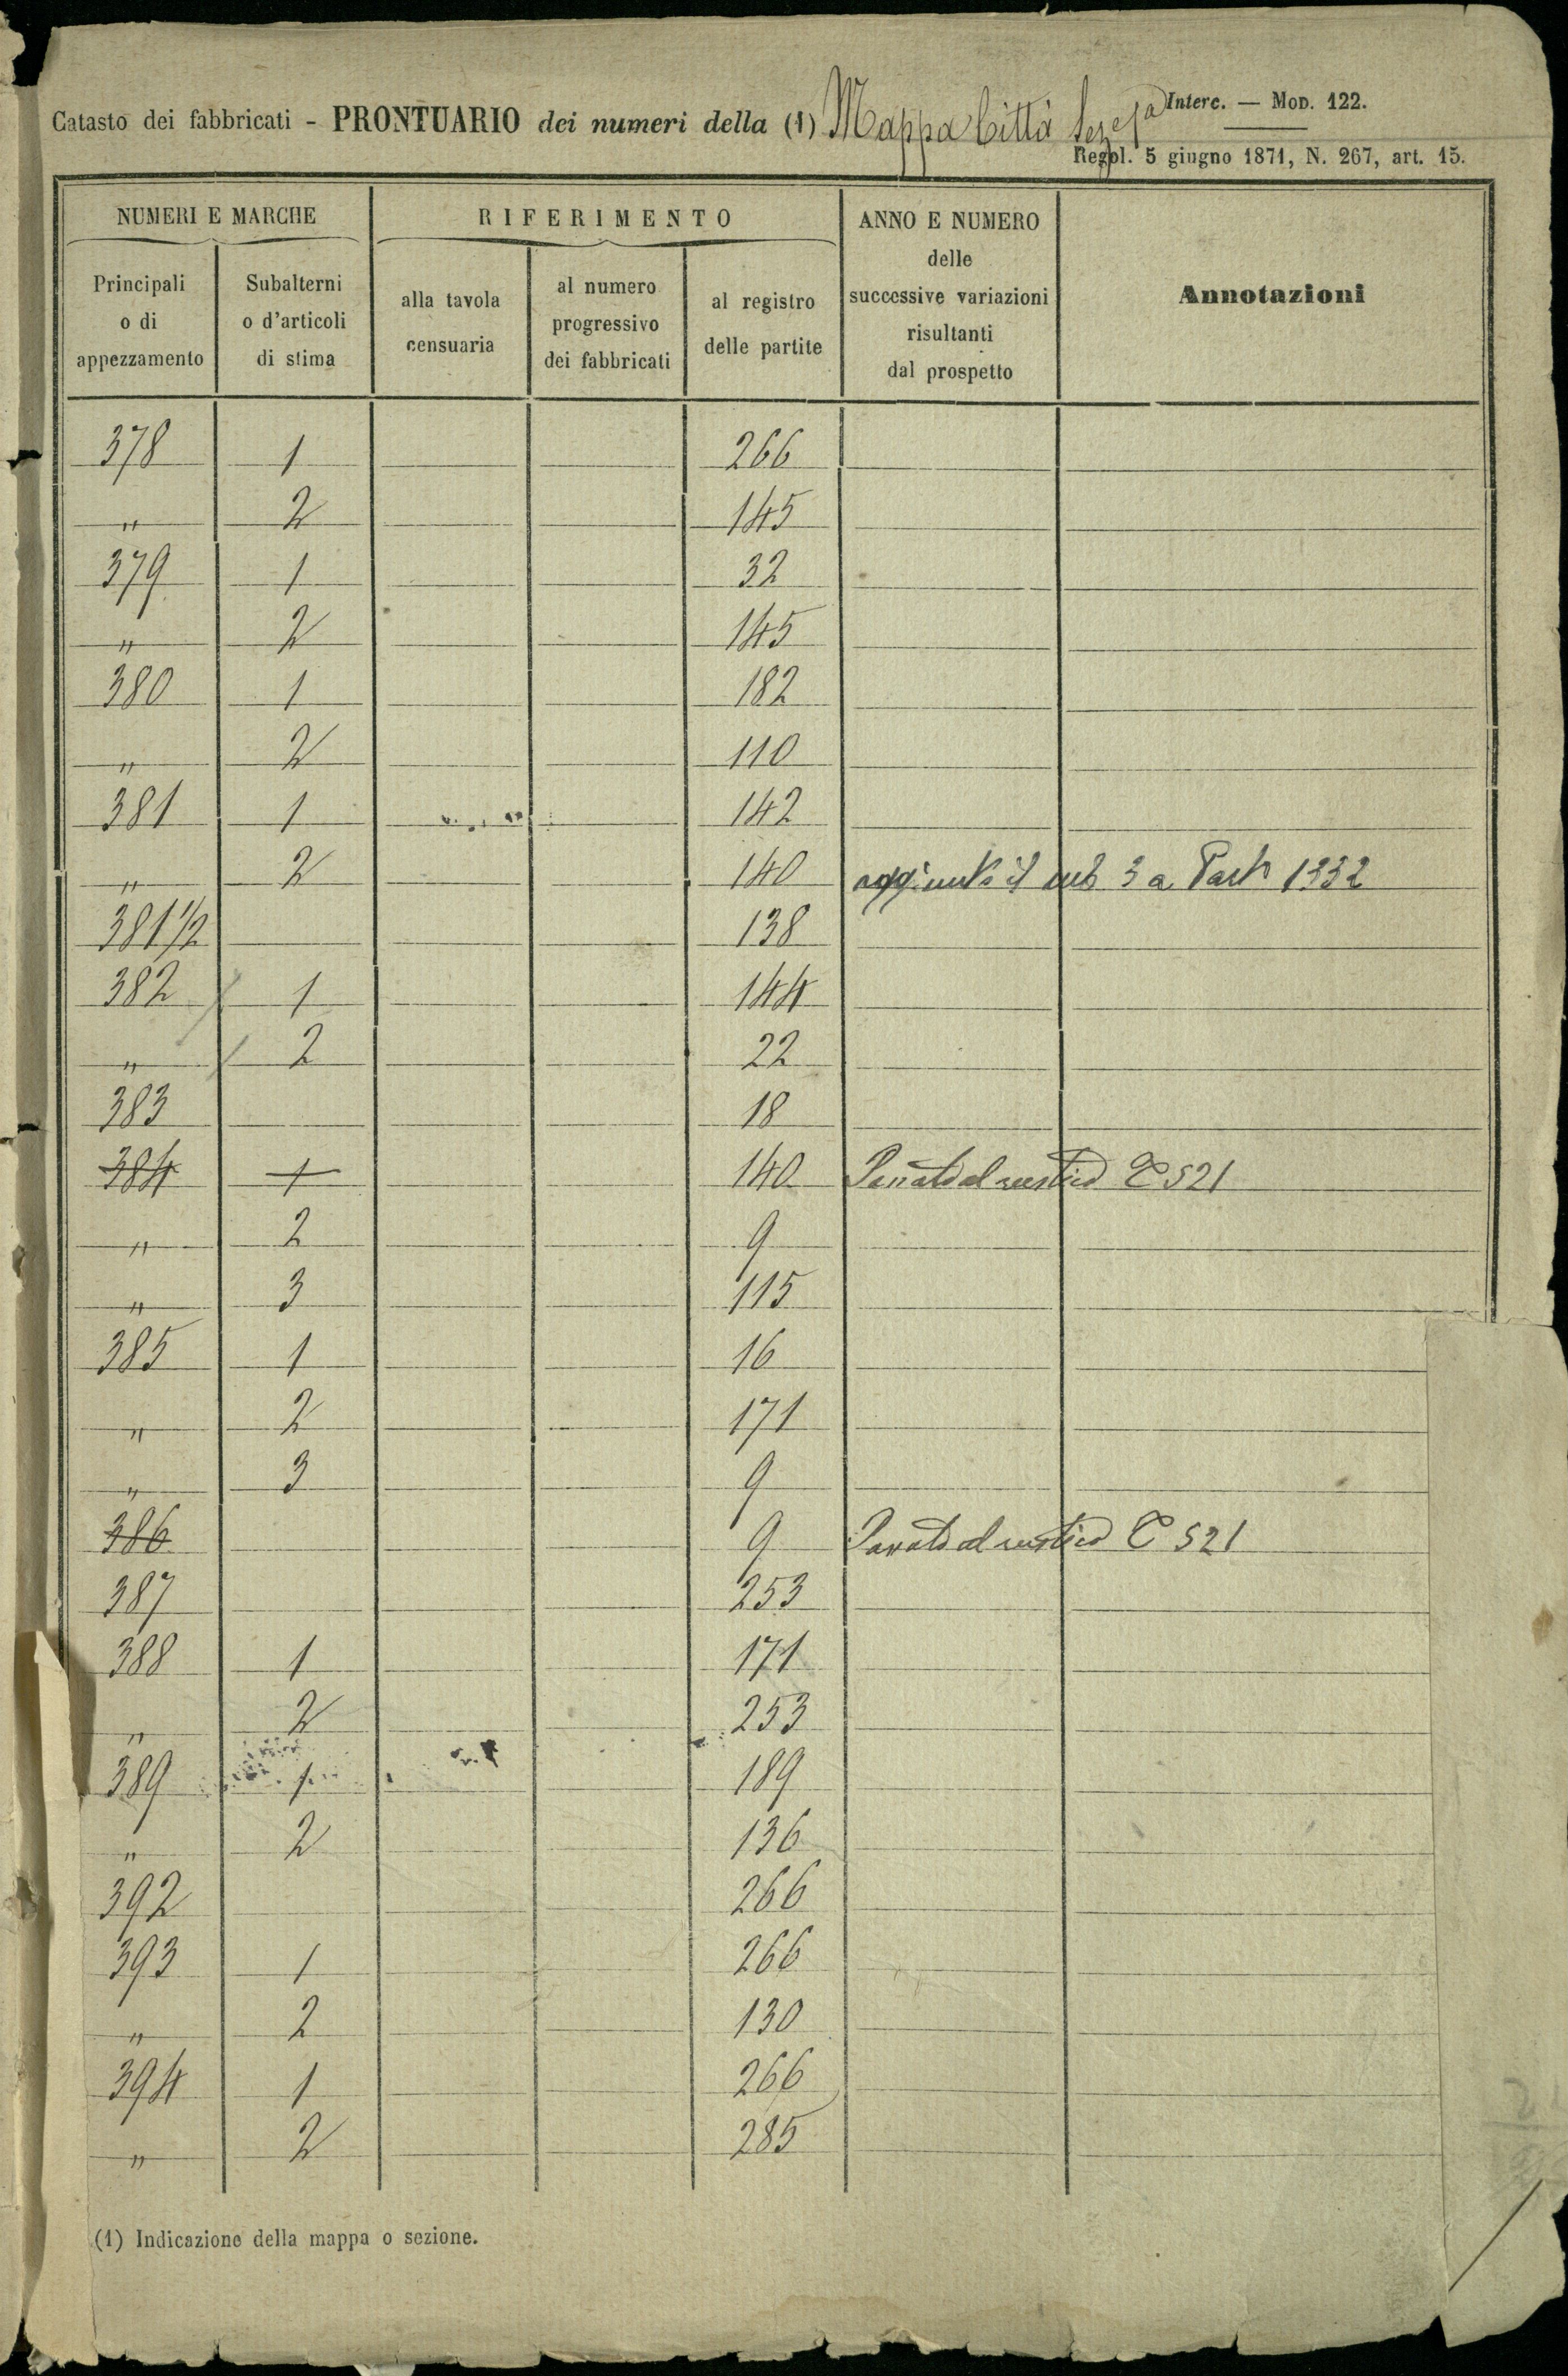 Catasto dei fabbricati - PRONTUARIO dei numeri della (1) Mappa Città Sezᵉ 1ª
Interc. — Mod. 122.
Regol. 5 giugno 1871, N. 267, art. 15.
NUMERI E MARCHE
Principali o di appezzamento
Subalterni o d'articoli di stima
RIFERIMENTO
alla tavola censuaria
al numero progressivo dei fabbricati
al registro delle partite
ANNO E NUMERO delle successive variazioni risultanti dal prospetto
Annotazioni
378 1 266
" 2 145
379 1 32
" 2 145
380 1 182
" 2 110
381 1 142
" 2 140 aggiunto il sub 3 a Part 1332
381 1/2 138
382 1 144
" 2 22
383 18
384 1 140 Passato al rustico C 521
" 2 9
" 3 115
385 1 16
" 2 171
" 3 9
386 9 Passato al rustico C 521
387 253
388 1 171
" 2 253
389 1 189
" 2 136
392 266
393 1 266
" 2 130
394 1 266
" 2 285
(1) Indicazione della mappa o sezione.